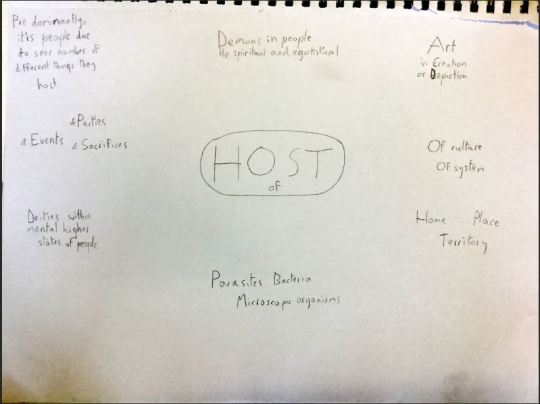 Predominantly,
it's people due
to seer number of
different things they
host.
Demons in people
the spiritual and egotistical
Art
in Creation
or Depiction
& Parties
& Events & Sacrifices
HOST
of
Of culture
Of system
Deities within
mental higher
states of people
Home Place
Territory
Parasites Bacteria
Microscopic organisms